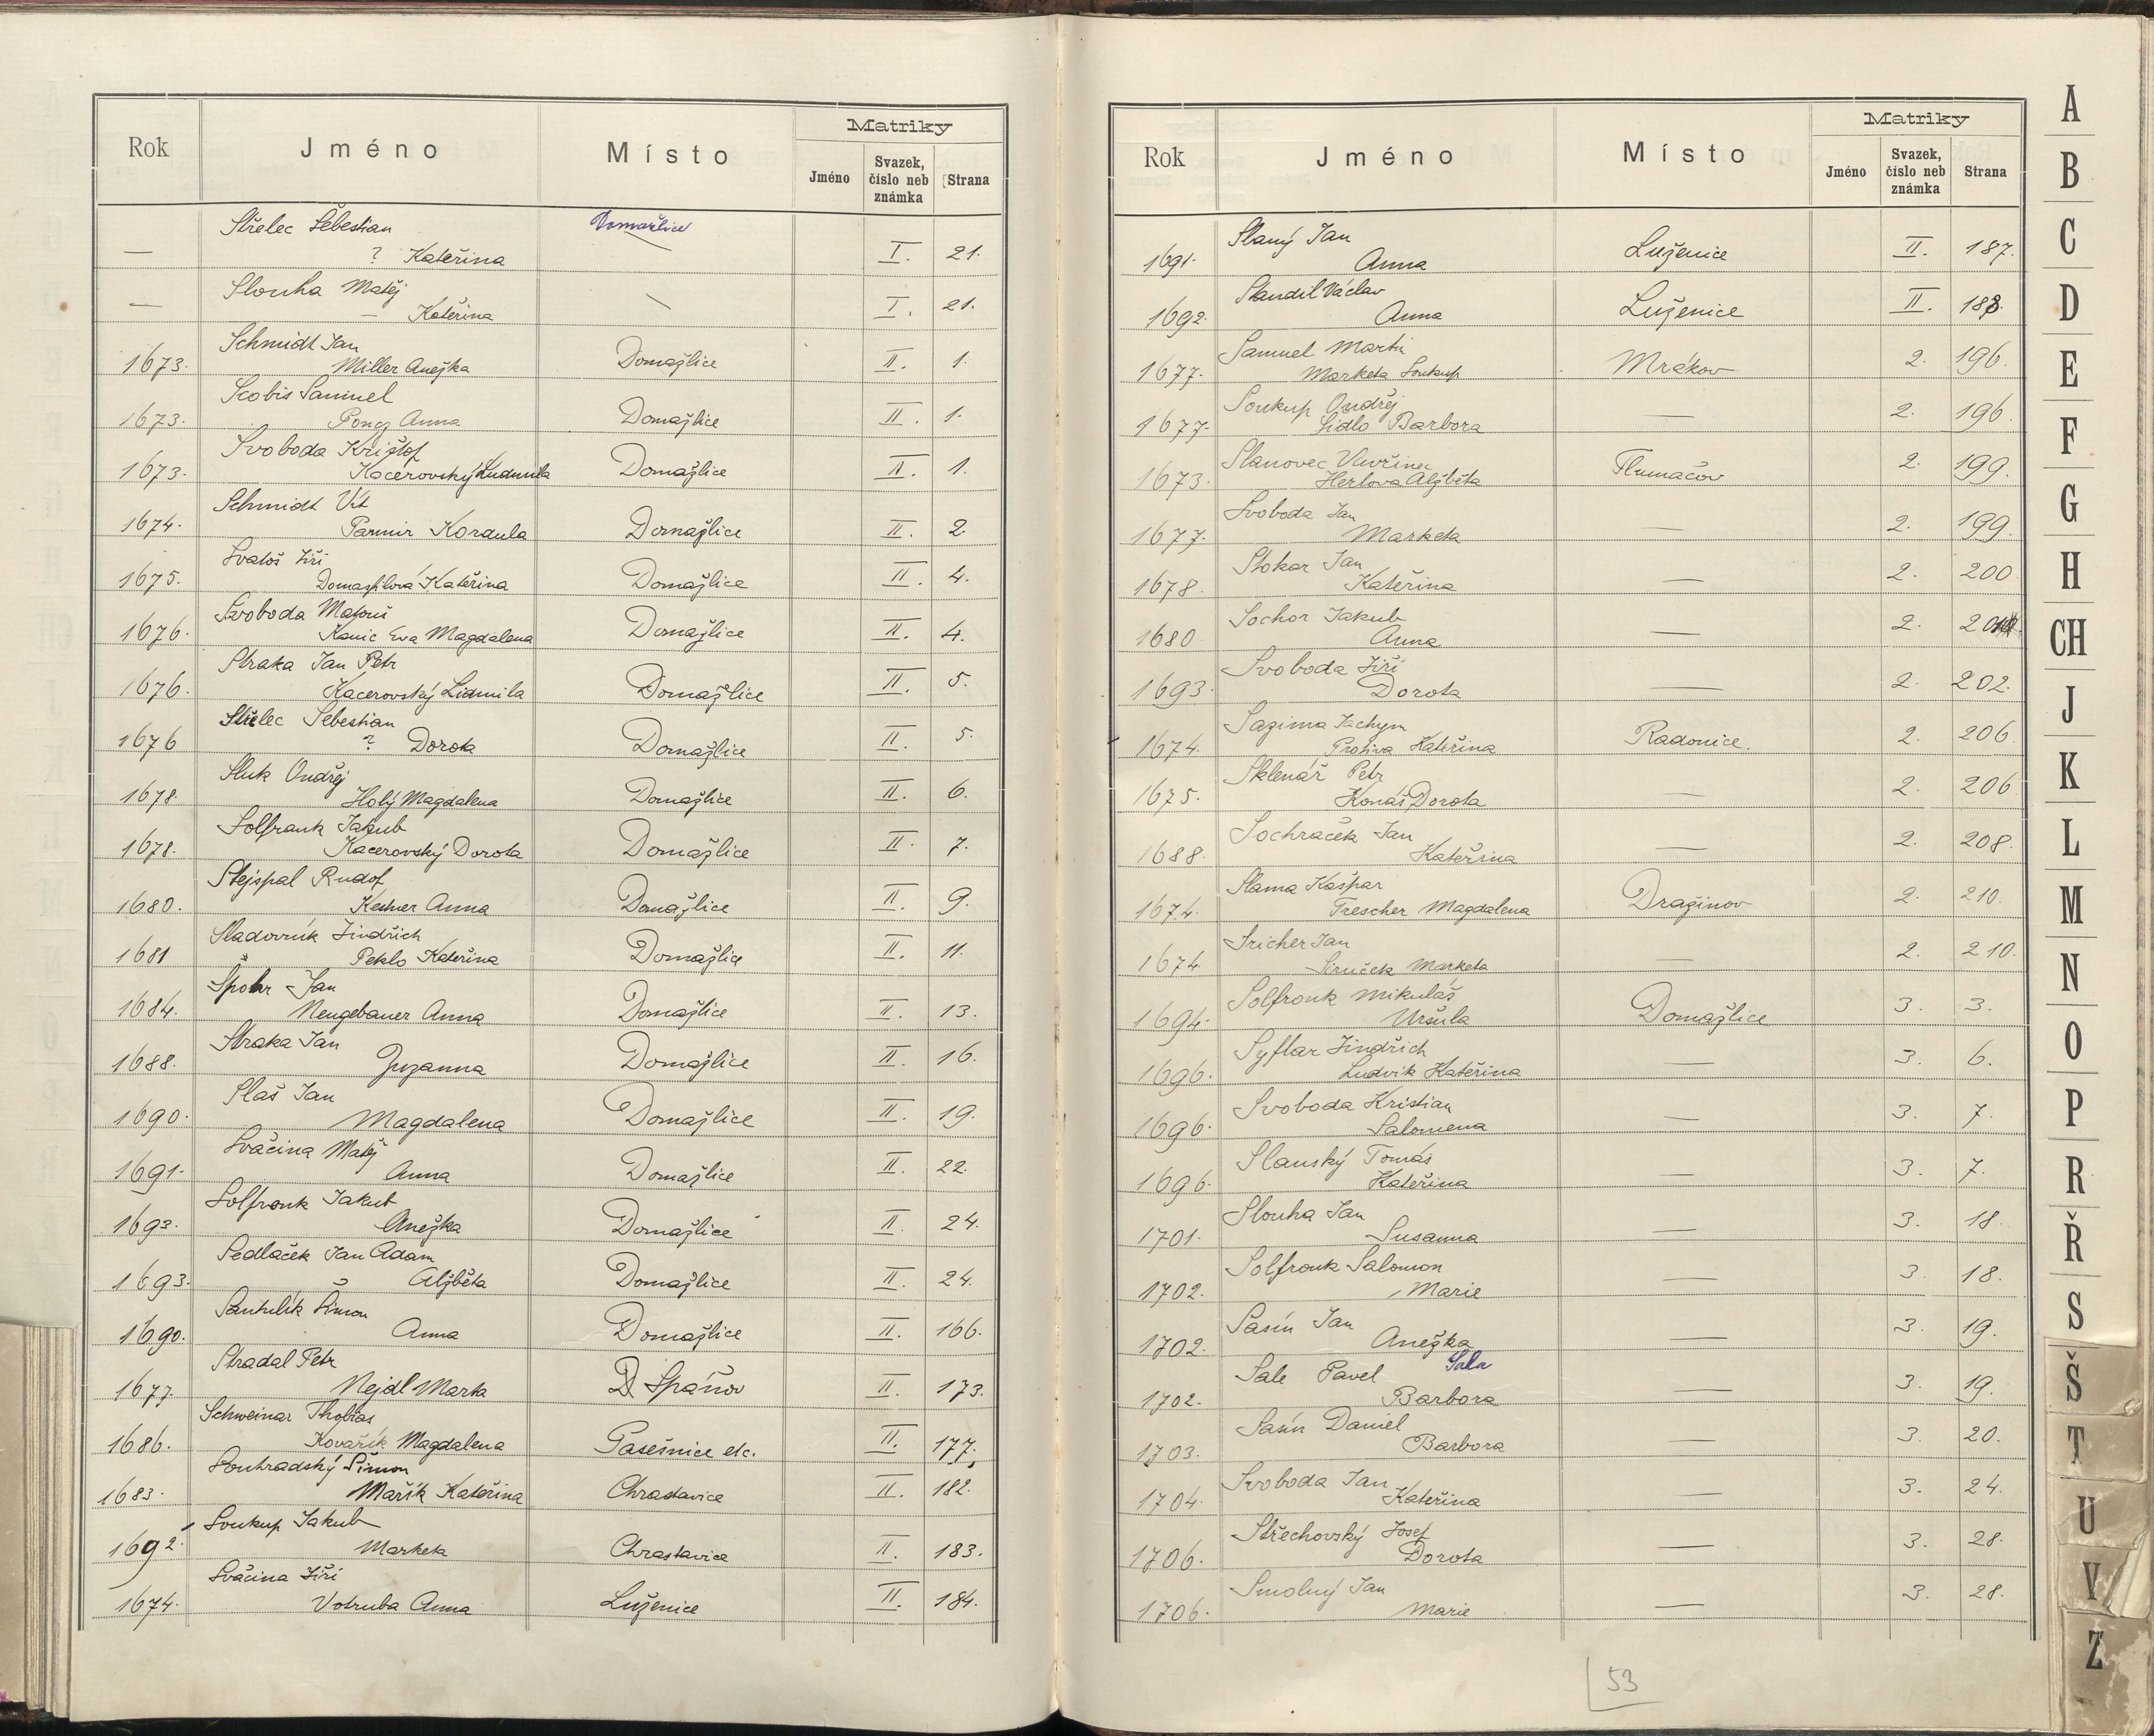 Rok Jméno Místo Matriky
Jméno Svazek, číslo neb známka Strana
Střelec Šebestian Domažlice
— ? Kateřina I. 21.
Slouha Matěj
— — Kateřina I. 21.
Schmidt Jan
1673. Miller Anežka Domažlice II. 1.
Scobis Samuel
1673. Poncz Anna Domažlice II. 1.
Svoboda Krištof
1673. Kacerovský Ludmila Domažlice II. 1.
Schmidt Vít
1674. Parmir Kordula Domažlice II. 2.
Svatoš Jiří
1675. Domažlilová Kateřina Domažlice II. 4.
Svoboda Matouš
1676. Kanic Eva Magdalena Domažlice II. 4.
Straka Jan Petr
1676. Kacerovský Lidmila Domažlice II. 5.
Střelec Šebestian
1676 ? Dorota Domažlice II. 5.
Sluk Ondřej
1678. Holý Magdalena Domažlice II. 6.
Solfrank Jakub
1678. Kacerovský Dorota Domažlice II. 7.
Stejspal Rudof
1680. Kestner Anna Domažlice II. 9.
Sladovník Jindřich
1681 Peklo Kateřina Domažlice II. 11.
Špohr Jan
1684. Neugebauer Anna Domažlice II. 13.
Straka Jan
1688. Zuzanna Domažlice II. 16.
Slaš Jan
1690. Magdalena Domažlice II. 19.
Svačina Matěj
1691. Anna Domažlice II. 22.
Solfronk Jakub
1693. Anežka Domažlice II. 24.
Sedlaček Jan Adam
1693. Alžběta Domažlice II. 24.
Santulík Šimon
1690. Anna Domažlice II. 166.
Stradal Petr
1677. Nejdl Marta D Spáňov II. 173.
Schweinar Thobias
1686. Kovařík Magdalena Pasešnice etc. II. 177.
Souhradský Šimon
1683. Mařík Kateřina Chrastavice II. 182.
Soukup Jakub
1692. Marketa Chrastavice II. 183.
Svačina Jiří
1674. Votruba Anna Luženice II. 184.
Rok Jméno Místo Matriky
Jméno Svazek, číslo neb známka Strana
Slaný Jan
1691. Anna Luženice II. 187.
Standil Václav
1692. Anna Luženice II. 188.
Samuel Martin
1677. Marketa Soukup Mrákov 2. 196.
Soukup Ondřej
1677. Sidlo Barbora — 2. 196.
Slanovec Vavřinec
1673. Herlova Alžběta Tlumačov 2. 199.
Svoboda Jan
1677. Marketa — 2. 199.
Stokar Jan
1678. Kateřina — 2. 200
Sochor Jakub
1680. Anna — 2. 201.
Svoboda Jiří
1693. Dorota — 2. 202.
Sazima Jachym
1674. Protiva Kateřina Radonice. 2. 206.
Sklenář Petr
1675. Konáš Dorota — 2. 206
Sochraček Jan
1688. Kateřina — 2. 208.
Slama Kašpar
1674. Trescher Magdalena Dražinov 2. 210.
Sricher Jan
1674. Siruček Marketa — 2. 210.
Solfronk Mikuláš
1694. Uršula Domažlice 3. 3.
Syflar Jindřich
1696. Ludvik Kateřina — 3. 6.
Svoboda Kristian
1696. Salomena — 3. 7.
Slanský Tomáš
1696. Kateřina — 3. 7.
Slouha Jan
1701. Susanna — 3. 18.
Solfronk Salomon
1702. Marie — 3. 18.
Sasín Jan
1702. Anežka — 3. 19.
Sale Pavel Sala
1702. Barbora — 3. 19.
Sasín Daniel
1703. Barbora — 3. 20.
Svoboda Jan
1704. Kateřina — 3. 24.
Střechovský Josef
1706. Dorota — 3. 28.
Smolný Jan
1706. Marie — 3. 28.
53
A
B
C
D
E
F
G
H
CH
J
K
L
M
N
O
P
R
Ř
S
Š
T
U
V
Z